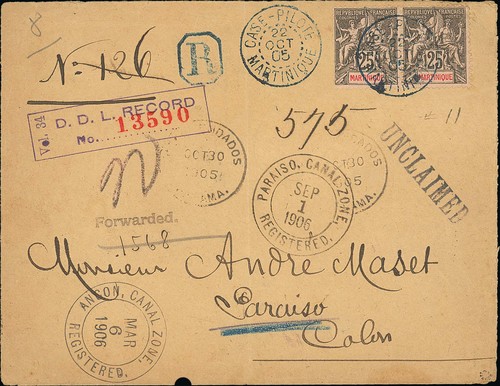 8
Nº 126
R
CASE-PILOTE
22
OCT
05
MARTINIQUE
REPUBLIQUE FRANCAISE
25
MARTINIQUE
REPUBLIQUE FRANCAISE
25
MARTINIQUE
Vol. 34
D. D. L. RECORD
No. 13590
OCT 30
1905
575
# 11
UNCLAIMED
OCT 30
PARAISO, CANAL ZONE,
SEP
1
1906
REGISTERED.
Forwarded.
1568
Monsieur Andre Maset
Paraiso
Colon
ANCON, CANAL ZONE,
MAR
6
1906
REGISTERED.